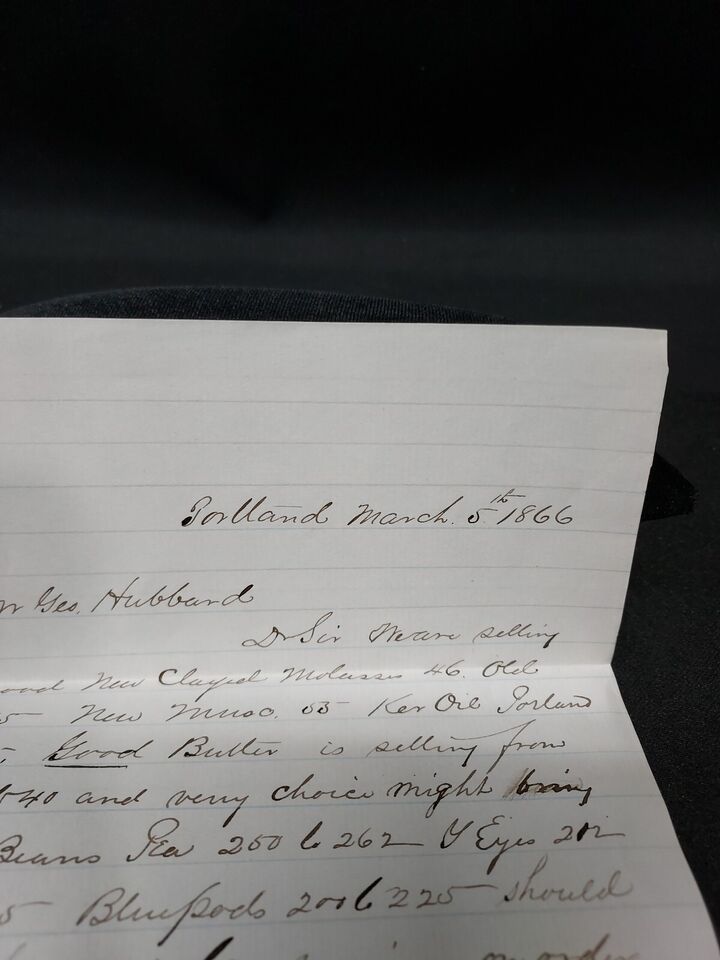 Portland March. 5th 1866
Mr Geo. Hubbard
Dr Sir We are selling
Good New Clayed Molasses 46. Old
New Musc. 55 Ker Oil Portland
Good Butter is selling from
to 40 and verry choice might bring
Beans Pea 250 to 262 Y Eyes 212
5 Bluepods 200 to 225 should